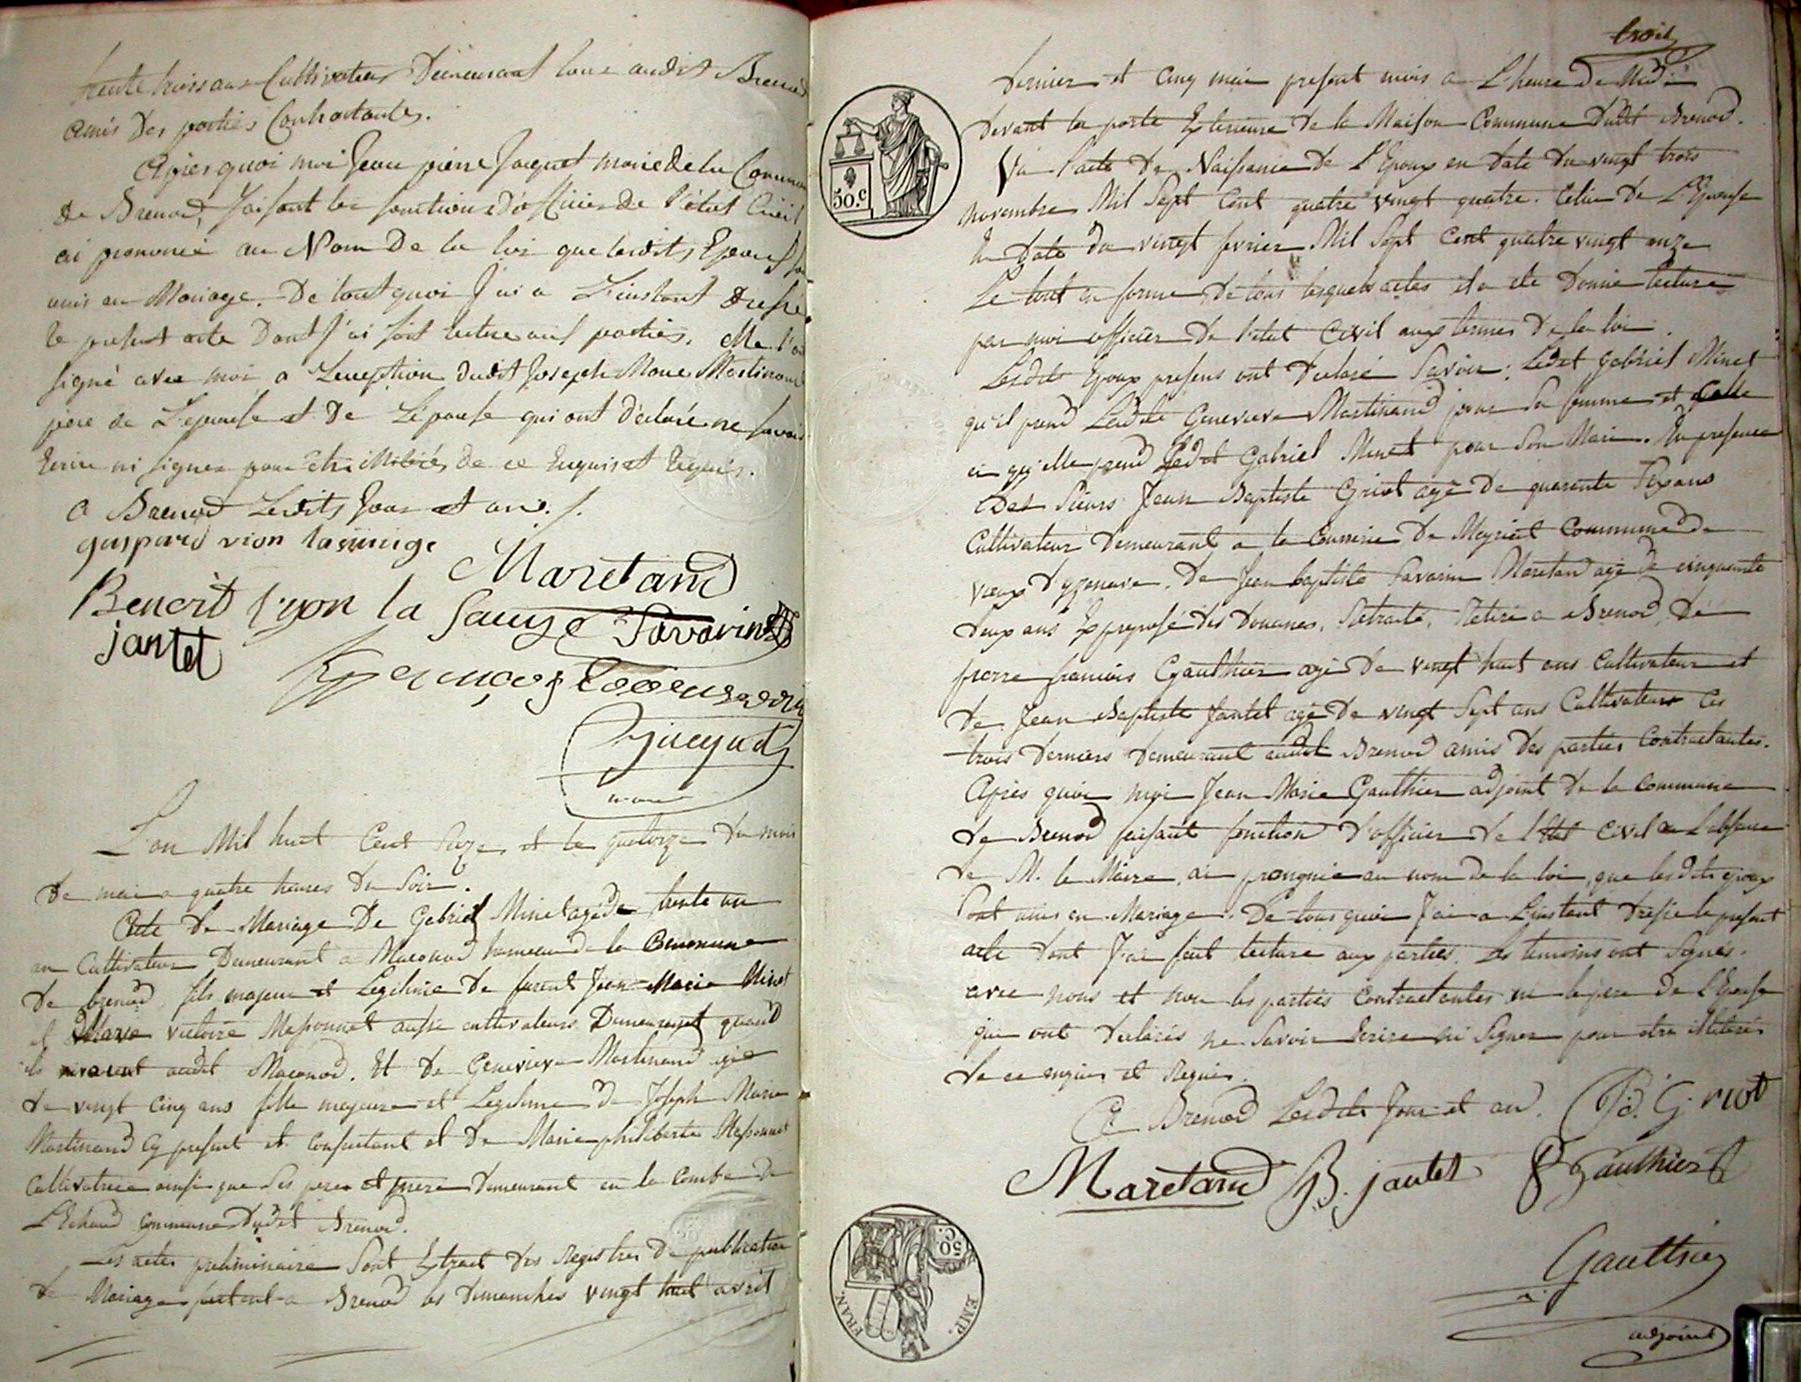 trente trois ans Cultivateur Demeurant tous audit Brenod
amis Des parties Contractantes.
Après quoi moi Jean pierre Jaquet maire de la Commune
de Brenod, faisant les fonctions d'officier de l'état Civil
ai prononcé au Nom De la loi que lesdits Epoux sont
unis en Mariage. De tout quoi J'ai a L'instant Dressé
le présent acte Dont J'ai fait lecture aux parties.
signé avec moi a L'exception dudit Joseph Marie Martinand
père de L'epouse et De L'épouse qui ont déclaré ne savoir
Ecrire ni signer pour être illitérés de ce Enquis et Requis.
a Brenod Lesdits Jour et an.
gaspard vion lasauge
Maretand
Benoit Vyon la Sauge Savarin
jantet
Jacquet
maire
L'on Mil huit Cent Seize et le quatorze du mois
de mai a quatre heures Du Soir.
Acte De Mariage De Gabriel Minet agé de trente un
an Cultivateur Demeurant a Maconod hameau de la Commune
De brenod, fils majeur et Legitime De furent Jean Marie Minet
et Marie victoire Messonnet aussi cultivateurs Demeurant quand
ils vivaient audit Maconod. Et De Genevieve Martinand agée
de vingt cinq ans fille majeure et Legitime De Joseph Marie
Martinand Cy present et Consentant et De Marie philiberte Messonnet
Cultivatrice ainsi que Ses pere et mere demeurant en la Combe de
L'Echaud Commune Dudit Brenod.
Les actes preliminaire Sont Extrait des Registres De publication
de Mariage faitent a Brenod les dimanches vingt huit avril
trois
dernier et cinq mai present mois a L'heure de Midi
devant la porte Exterieure de la Maison Commune Dudit Brenod.
Vu l'acte de Naissance De L'Epoux en date du vingt trois
novembre Mil Sept Cent quatre vingt quatre. Celui De L'Epouse
En Date du vingt fevrier Mil Sept Cent quatre vingt onze
Le tout en forme, De tous lesquels actes il a ete Donné lecture
par moi officier De l'etat Civil aux termes De la loi.
Lesdits Epoux presens ont Declaré Savoir: Ledit Gabriel Minet
qu'il prend Ladite Genevieve Martinand pour Sa femme et Celle
ci qu'elle prend Ledit Gabriel Minet pour Son Mari. En presence
Des Sieurs Jean Baptiste Griot agé De quarante Six ans
Cultivateur demeurant a la Couvrerie De Meyriat Commune de
vieux d'yzenave. De Jean baptiste Savarin Maretand agé de cinquante
deux ans Ex preposé des Douanes, Retraité, Retiré a Brenod, De
pierre francois Gauthier agé De vingt huit ans Cultivateur et
De Jean Baptiste Jantet agé De vingt Sept ans Cultivateur Ces
trois derniers demeurant audit Brenod amis Des parties Contractantes.
Après quoi moi Jean Marie Gauthier adjoint de la commune
de Brenod faisant fonction d'officier de l'Etat Civil en L'absence
De M. le Maire, ai prononcé au nom de la loi, que lesdits epoux
Sont unis en Mariage. De tous quoi J'ai a L'instant Dressé le present
acte dont J'ai fait lecture aux parties. Les temoins ont Signés
avec nous et non les parties Contractantes ni le pere de L'Epouse
qui ont declarés ne Savoir Ecrire ni Signer pour etre illiterés
de ce enquis et Requis.
A Brenod Lesdits Jour et an. Bd. Griot
Maretand B. jantet P Gauthier
Gauthier
adjoint
50.c
50 C.
EMP. FRAN.